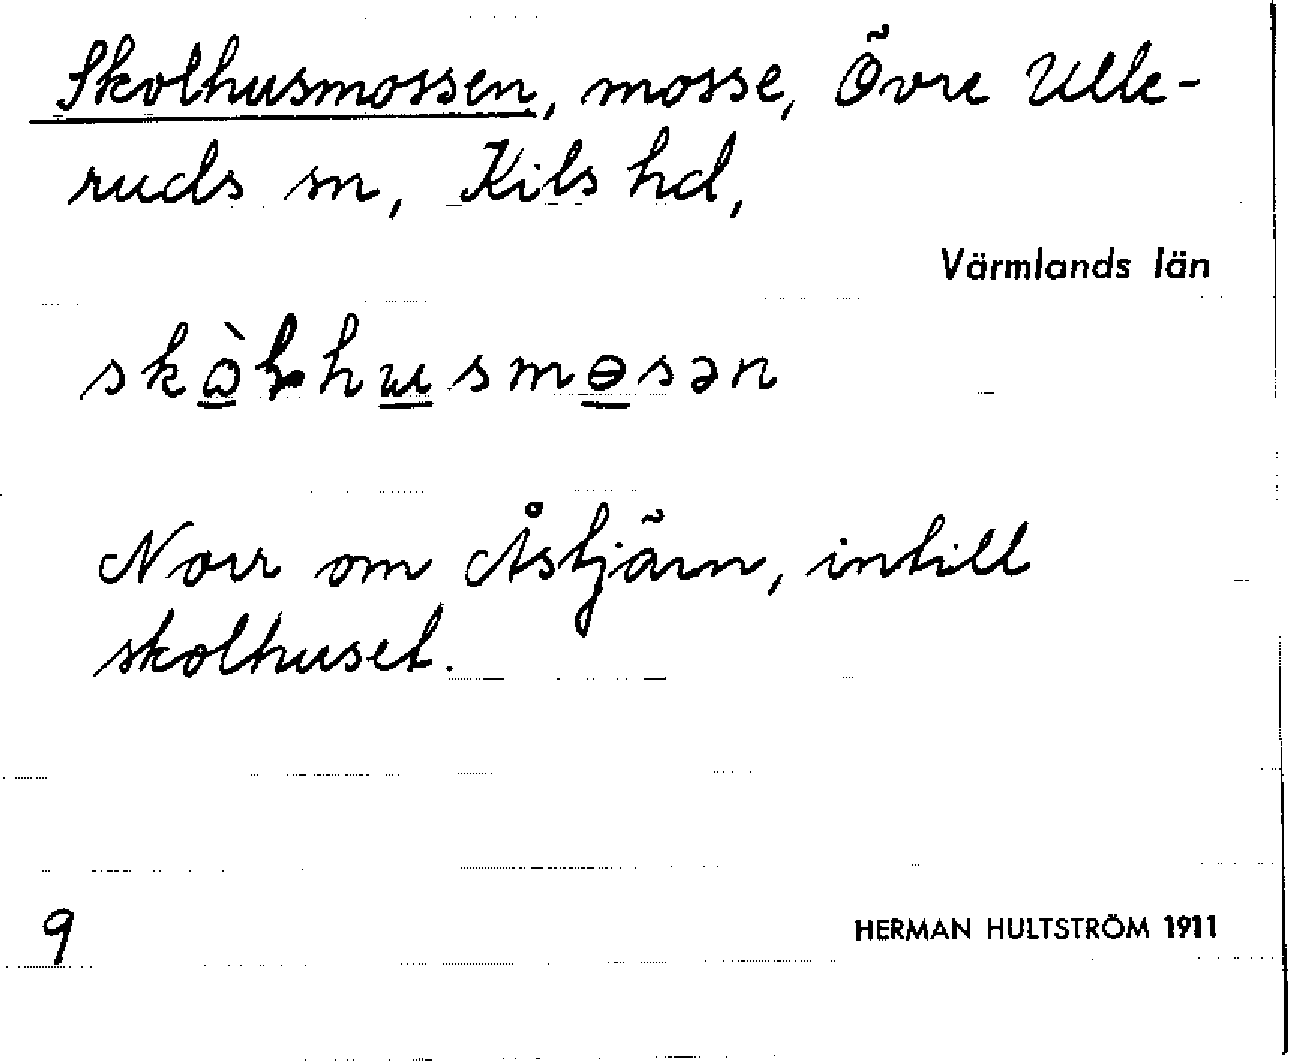 Skolhusmossen, mosse, Övre Ulle-
ruds sn, Kils hd,
Värmlands län
skɷ̀lhusmɵsən
Norr om Åstjärn, intill
skolhuset.
9
HERMAN HULTSTRÖM 1911